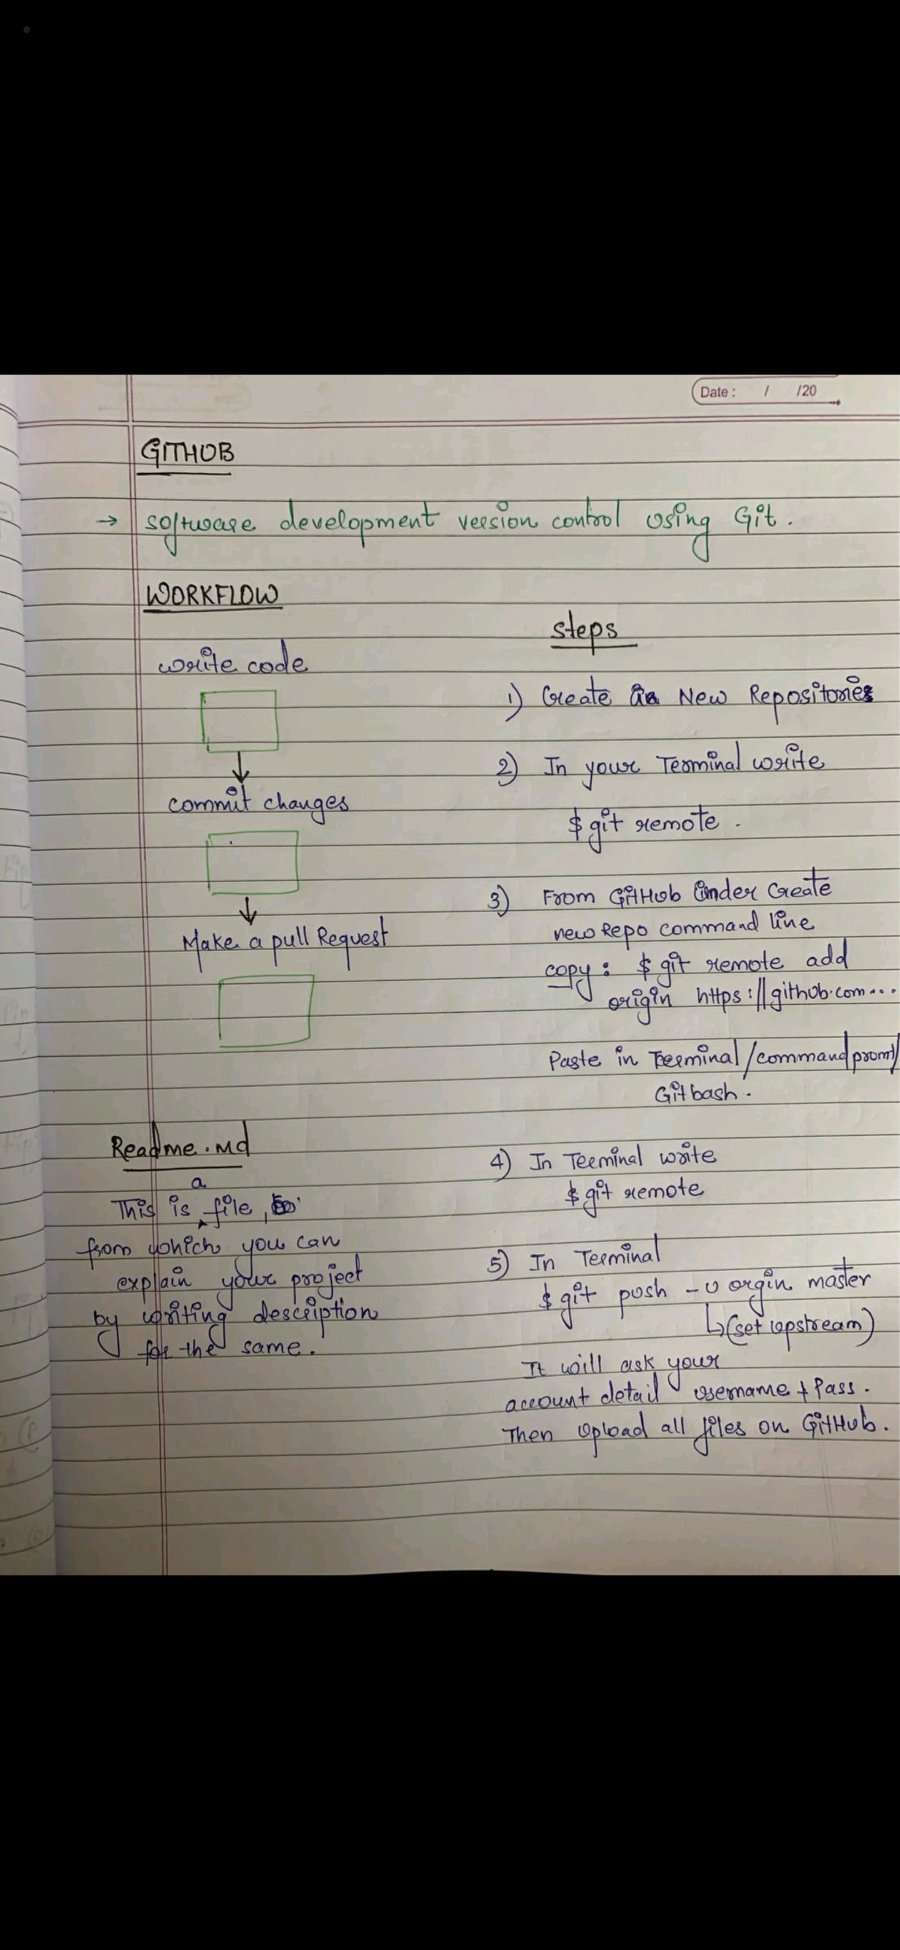 Date : / /20
GITHUB
→ software development version control using Git.
WORKFLOW
write code
commit changes
Make a pull Request
Readme.md
a
This is file,
from which you can
explain your project
by writing description
for the same.
steps
1) Create a New Repositories
2) In your Terminal write
$ git remote.
3) From GitHub Under Create
new Repo command line
copy: $ git remote add
origin https://github.com...
Paste in Terminal/command promt/
Gitbash.
4) In Terminal write
$ git remote
5) In Terminal
$ git push -u orgin master
↳ (set upstream)
It will ask your
account detail username + Pass.
Then upload all files on GitHub.